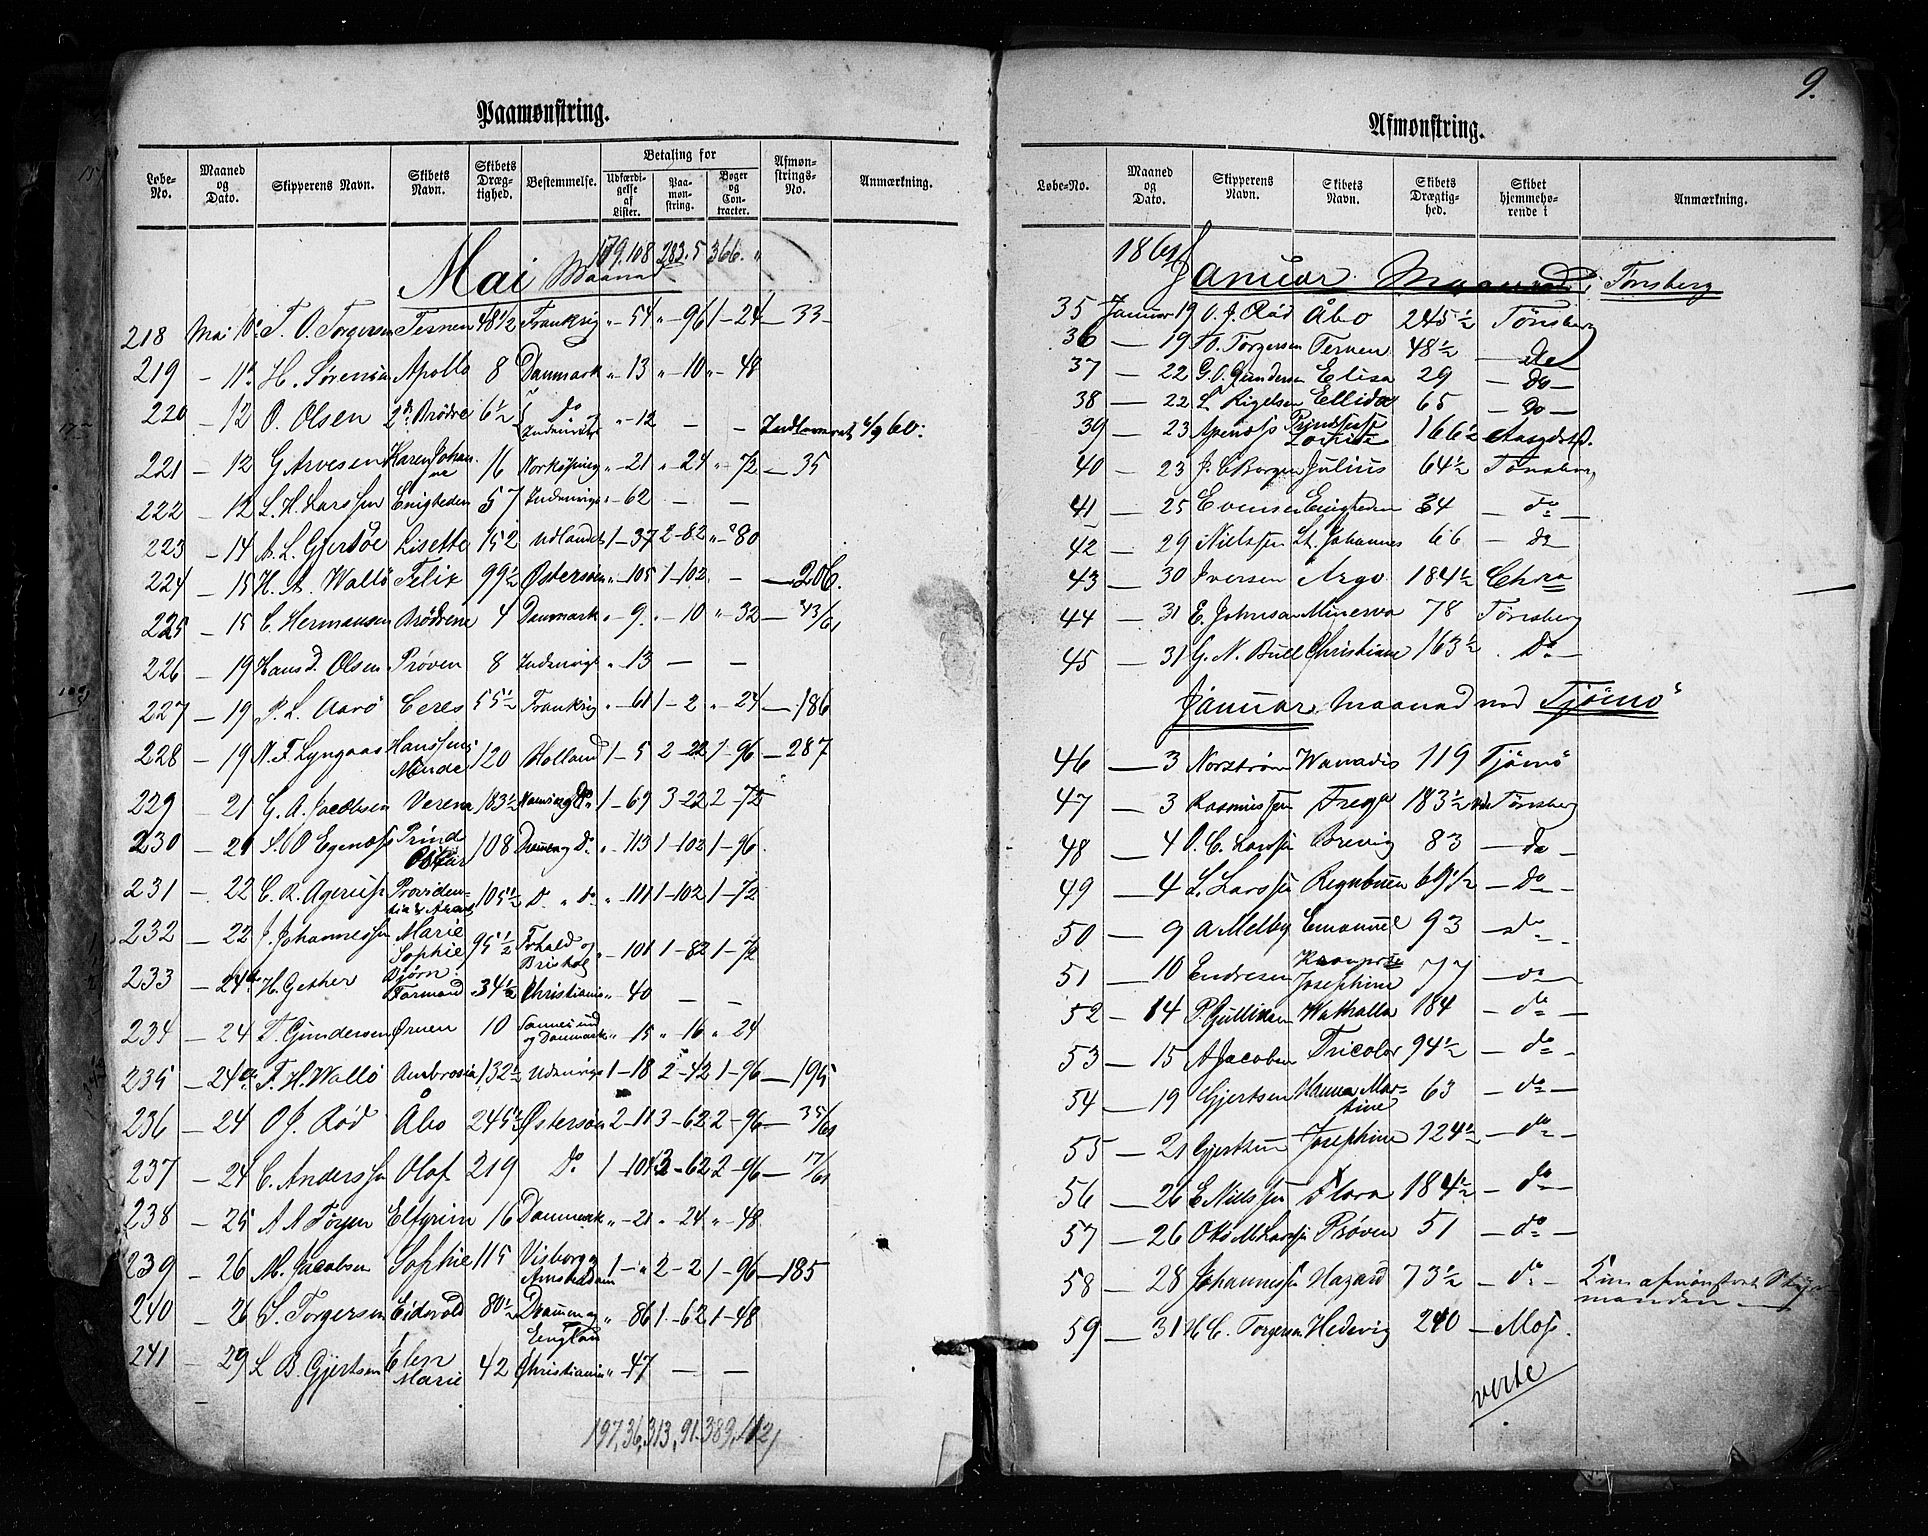 Paamønstring.
Løbe-No. Maaned og Dato. Skipperens Navn. Skibets Navn. Skibets Dræg-tighed. Bestemmelse. Betaling for Udfærdi-gelse af Lister. Paa-mon-string. Bøger og Con-tracter. Afmøn-strings-No. Anmærkning.
179.108 283.5 366. "
Mai Maaned
218 Mai 10 T. O. Torgersen Ternen 48 1/2 Frankrig " - 54 " - 96 1 - 24 - 33 -
219 - 11 H. Sørensen Apollo 8 Danmark " - 13 " - 10 " - 48
220 - 12 O. Olsen 2de Brødre 6 1/2 do Indenrigs " - 12 - - Indleveret 6/9 60.
221 - 12 G Arvesen Karen Johanne 16 Norkøping " - 21 " - 24 " - 72 - 35
222 - 12 L. H. Larssen Enigheden 57 Indenrigs " - 62 - -
223 - 14 A. L. Gjertsøe Lisette 152 Udlandet 1 - 37 2 - 82 " - 80
224 - 15 H. A. Wallø Felix 99 1/2 Østersøen " - 105 1 - 102 " - - 206.
225 - 15 C. Hermansen Brødrene 4 Danmark " - 9. " - 10 " - 32 - 43/61
226 - 19 Hans d. Olsen Prøven 8 Indenrigs " - 13 - -
227 - 19 P. L. Aarø Ceres 55 1/2 Frankrig " - 61 1 - 2 " - 24 - 186
228 - 19 N. F. Lyngaas Hanssens Minde 120 Holland 1 - 5 2 - 22 1 - 96 - 287
229 - 21 C. A. Jacobsen Verena 183 1/2 Do 1 - 69 3 - 22 2 - 72
230 - 21 S. O Egenæss Prinds Oskar 108 Drammen og Do " - 113 1 - 102 1 - 96.
231 - 22 C. R. Agerup 105 1/2 D. " do " - 111 1 - 102 1 - 72
232 - 22 J. Johannessen Marie Sophie 95 1/2 og Bristol " - 101 1 - 82 1 - 72
233 - 24 H. Gether Bjørn Farmand 34 1/2 Christiania " - 40 - -
234 - 24 T. Gundersen Ørnen 10 og Danmark " - 15 " - 16 " - 24
235 - 24 F. H. Wallø Ambrosia 132 1/2 Udenrigs 1 - 18 2 - 42 1 - 96 - 195
236 - 24 O J. Rød Åbo 245 1/2 Østersøen 2 - 11 3 - 62 2 - 96 - 35/61
237 - 24 C. Anderssen Olaf 219 Do 1 - 101 3 - 62 2 - 96 - 17/61
238 - 25 A A Førjen Elfgrim 16 Danmark " - 21 " - 24 " - 48
239 - 26 M. Jacobsen Sophie 115 Visborg og Amsterdam 1 - " 2 - 2 1 - 96 - 185
240 - 26 S. Torgersen Eidsvold 80 1/2 Drammen og England " 86 1 - 62 1 - 48
241 - 29 L B. Gjertsen Elen Marie 42 Christiania " - 47 - -
197,36,313,91.389,112
9.
Afmønstring.
Løbe-No. Maaned og Dato. Skipperens Navn. Skibets Navn. Skibets Drægtig-hed. Skibet hjemmehø-rende i Anmærkning.
1861 Januar Maaned i Tønsberg
35 Januar 19 O. J. Rød Åbo 245 1/2 Tønsberg
36 - 19 T. O. Torgersen Ternen 48 1/2 - do
37 - 22 G. O. Gundersen Elisa 29 - do -
38 - 22 L Rigelsen Ellida 65 - do -
39 - 23 Apenæss Prindsesse Lovise 166 1/2 Aasgdst.
40 - 23 J. C Borgen Julius 64 1/2 Tønsberg
41 - 25 Evensen Enigheden 34 - do -
42 - 29 Nielssen St. Johannes 66 - do
43 - 30 Iversen Argo 184 1/2 Chra
44 - 31 E. Johnsen Minerva 78 Tønsberg
45 - 31 G. N. Bull Christiane 163 1/2 . Do -
Januar Maaned ved Tjømø
46 - 3 Norstrøm Wanadis 119 Tjømø
47 - 3 Rasmussen Freya 183 1/2 Tønsberg
48 - 4 O. C. Larssen Brevig 83 - do -
49 - 4 L. Larssen Regnbuen 69 1/2 - Do -
50 - 9 A Melby Emanuel 93 - do -
51 - 10 Endresen Josephine 77 - do -
52 - 14 P. Gullichsen Walhalla 184 - do -
53 - 15 A Jacobsen Tricolor 94 1/2 - do -
54 - 19 Gjertsen Hanna Martine 63 - do -
55 - 21 Gjertsen Josephine 124 1/2 - do -
56 - 26 E Nielssen Flora 184 1/2 - do -
57 - 26 Otto M Larssen Prøven 51 - do -
58 - 28 Johannessen Hazard 73 1/2 - do - Kun afmønstret Styrmanden
59 - 31 H C. Torgersen Hedevig 240 - Moss.
verte